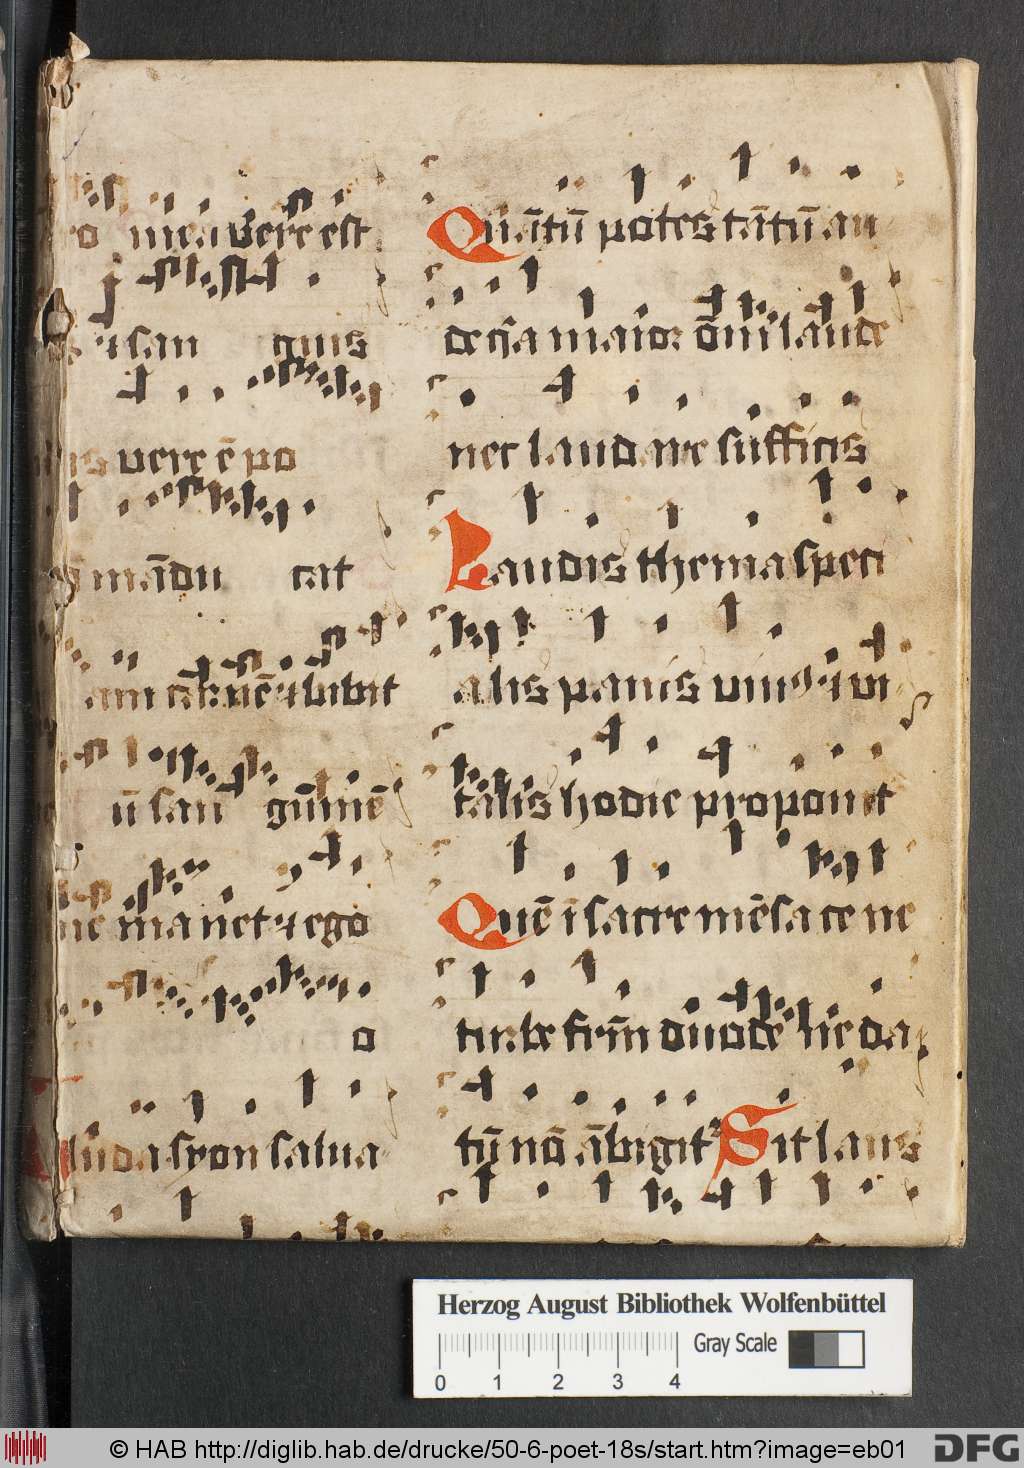 ro mea vere est
⁊ san guis
us vere ē po
mādu cat
am carnē ⁊ bibit
ū san guinē
me in me manet ⁊ ego
o
auda syon salua
Quātū potes tātū au
de q̄a maior om̄i laude
nec laudare sufficis
Laudis thema speci
alis panis viuꝰ ⁊ vi
talis hodie proponit
Quē ī sacre mēsa ce ne
turbe frm̄ duodē ne da
tū nō ābigit² Sit laus
Herzog August Bibliothek Wolfenbüttel
Gray Scale
0 1 2 3 4
© HAB http://diglib.hab.de/drucke/50-6-poet-18s/start.htm?image=eb01
DFG